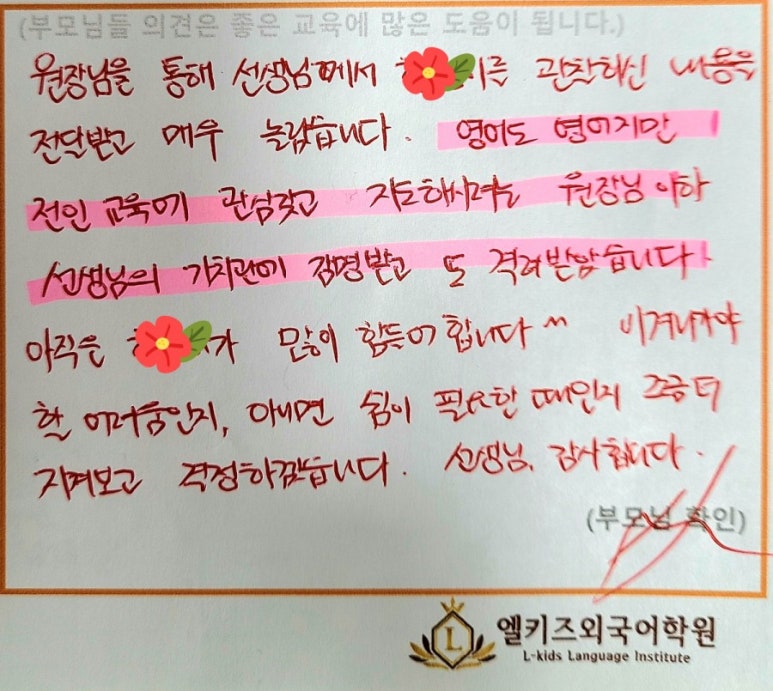 (부모님들 의견은 좋은 교육에 많은 도움이 됩니다.)
원장님을 통해 선생님께서 이를 관찰하신 내용을
전달받고 매우 놀랍습니다. 영어도 영어지만
전인 교육에 관심갖고 지도하시려는 원장님 이하
선생님의 가치관에 감명받고 또 격려받았습니다.
아직은 가 많이 힘들어 합니다^^ 이겨내야
할 어려움인지, 아니면 쉼이 필요한 때인지 조금 더
지켜보고 걱정하겠습니다. 선생님, 감사합니다.
(부모님 확인)
L
엘키즈외국어학원
L-kids Language Institute